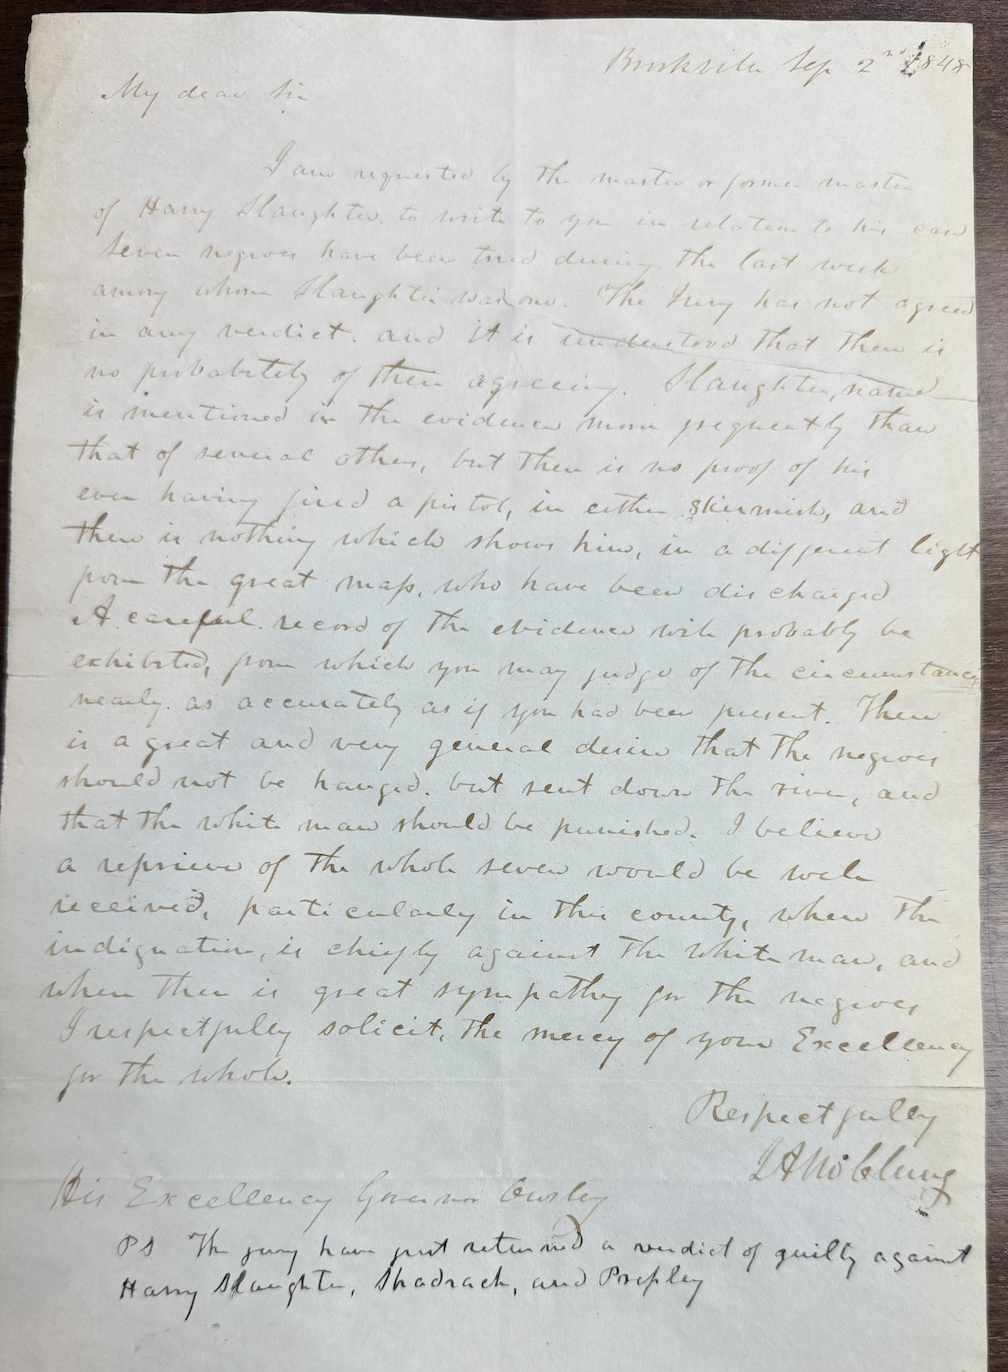 Brooksville Sep 2nd 1848
My dear Sir
I am requested by the master or former master
of Harry Slaughter, to write to you in relation to his case
Seven negroes have been tried during the last week
among whom Slaughter was one. The Jury has not agreed
in any verdict. and it is understood that there is
no probability of their agreeing. Slaughter, name
is mentioned in the evidence more frequently than
that of several others, but there is no proof of his
ever having fired a pistol, in either skirmish, and
there is nothing which shows him, in a different light
from the great mass, who have been discharged
A careful record of the evidence will probably be
exhibited, from which you may judge of the circumstances
nearly as accurately as if you had been present. There
is a great and very general desire that the negroes
should not be hanged. but sent down the river, and
that the white man should be punished. I believe
a reprieve of the whole seven would be well
received, particularly in this county, where the
indignation, is chiefly against the white man, and
where there is great sympathy for the negroes
I respectfully solicit, the mercy of your Excellency
for the whole.
Respectfully
J A McClung
His Excellency Governor Owsley
PS The jury have just returned a verdict of guilty against
Harry Slaughter, Shadrach, and Presley